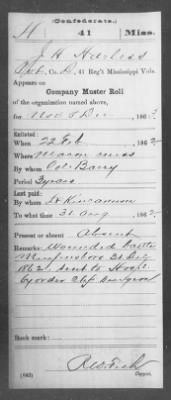 (Confederate.)
H 41 Miss.
J H Harless
Pvt, Co. D, 41 Reg't Mississippi Vols.
Appears on
Company Muster Roll
of the organization named above,
for Nov & Dec, 1862
Enlisted:
When 22 Feb, 186
Where Macon Miss
By whom Col. Barry
Period 3 years
Last paid:
By whom Lt Kincannon
To what time 31 Aug, 1862
Present or absent Absent
Remarks: Wounded battle
Murfreesboro 31 Dec
1862. Sent to Hospl
by order Chf Surgeon
Book mark:
(642) Copyist.